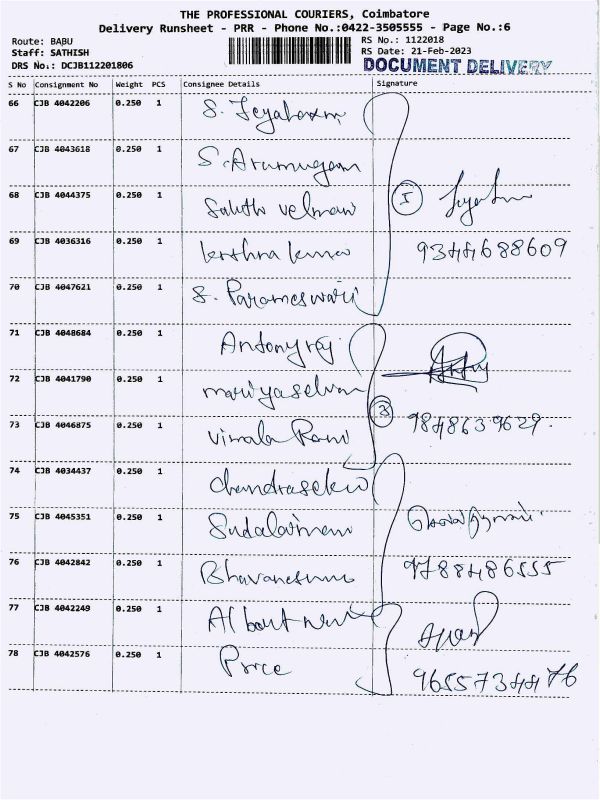 THE PROFESSIONAL COURIERS, Coimbatore
Delivery Runsheet - PRR - Phone No.:0422-3505555 - Page No.:6
Route: BABU
RS No.: 1122018
Staff: SATHISH
RS Date: 21-Feb-2023
DRS No.: DCJB112201806
DOCUMENT DELIVERY
S No Consignment No Weight PCS Consignee Details Signature
66 CJB 4042206 0.250 1 S. Jeyalaxmi
67 CJB 4043618 0.250 1 S. Arumugam
68 CJB 4044375 0.250 1 Sakthi velman
69 CJB 4036316 0.250 1 9344688609
70 CJB 4047621 0.250 1 S. Parameswari
71 CJB 4048684 0.250 1 Antonyraj
72 CJB 4041790 0.250 1 mariyaselvam
73 CJB 4046875 0.250 1 Vimala Rani 9848639629.
74 CJB 4034437 0.250 1 Chandrasekar
75 CJB 4045351 0.250 1 Sudalaimani
76 CJB 4042842 0.250 1 9788486555
77 CJB 4042249 0.250 1 Albout
78 CJB 4042576 0.250 1 Price 9655734476